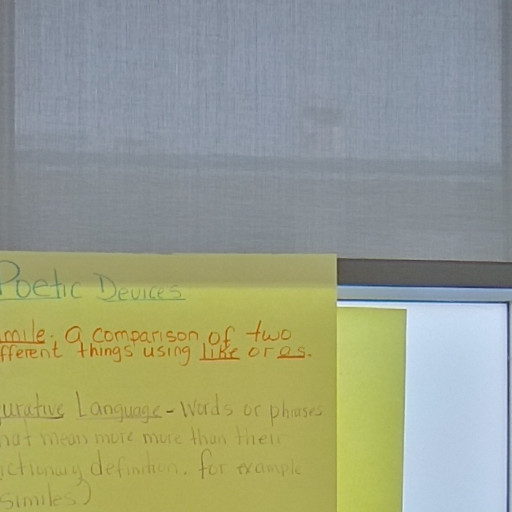 Poetic Devices
mile. a comparison of two
fferent things using like or as.
urative Language - Words or phrases
hat mean more more than their
ictionary definition. for example
similes)